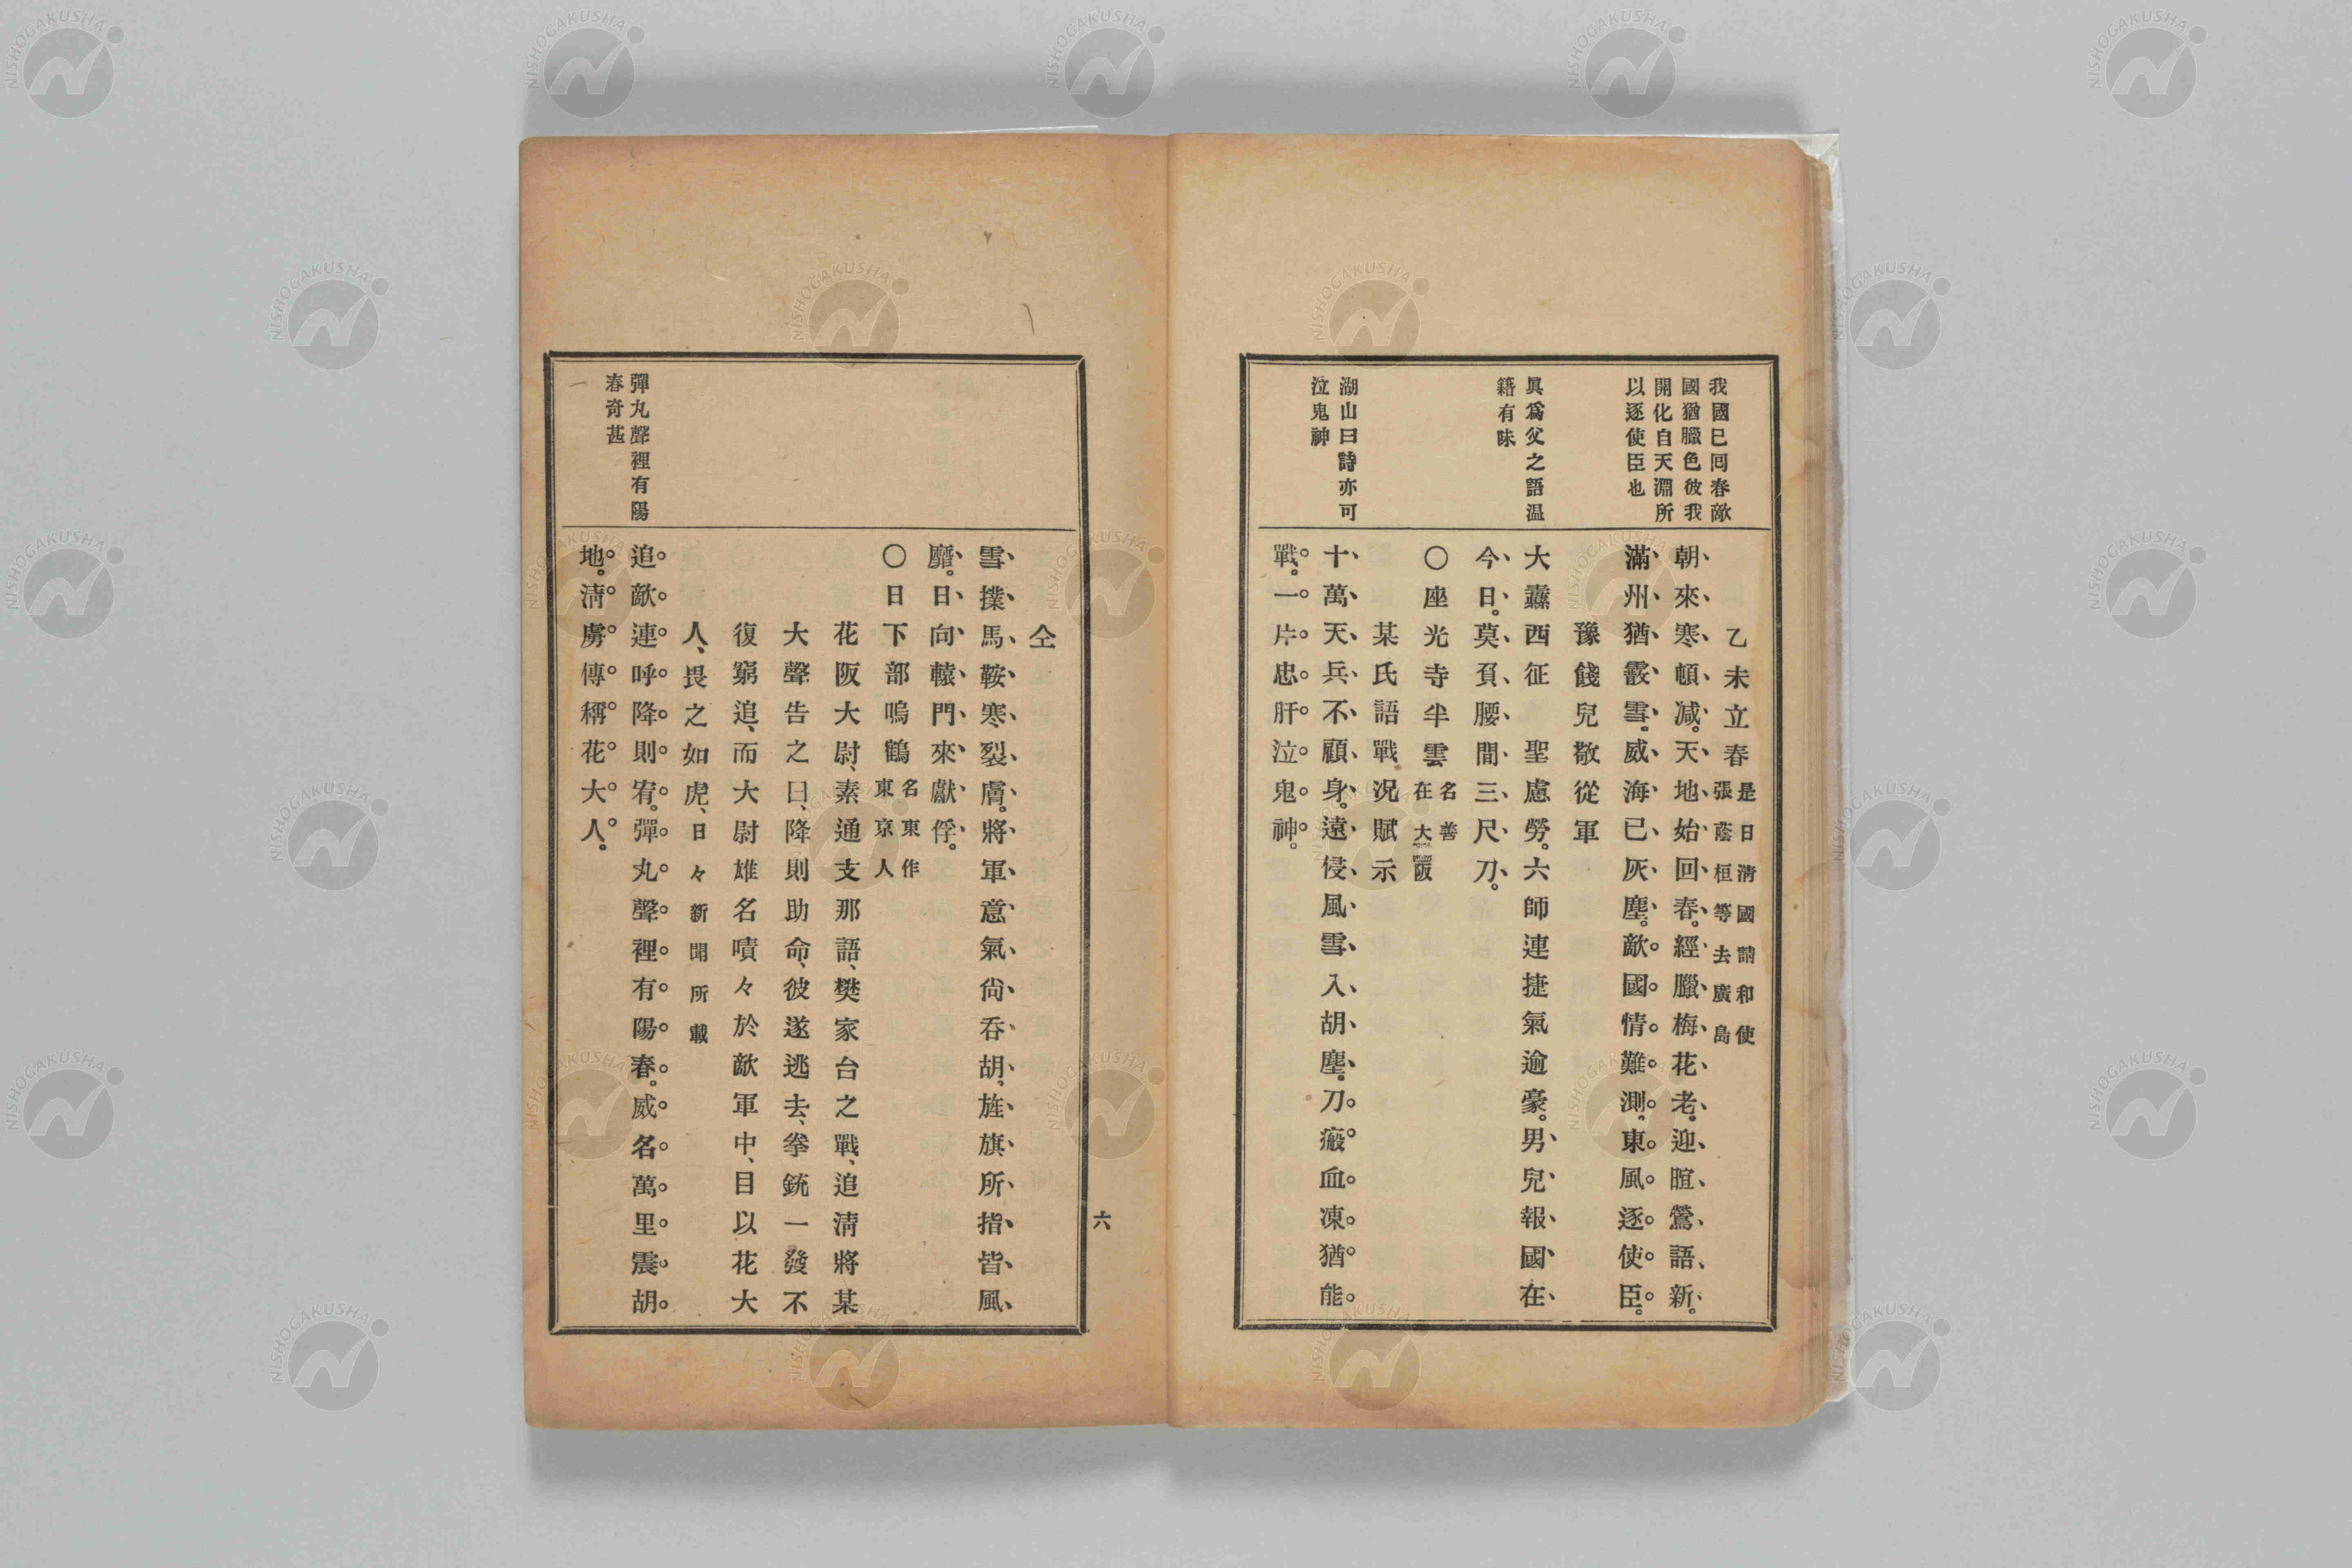 我國已囘春敵
國猶臘色彼我
開化自天淵所
以逐使臣也
眞爲父之語温
籍有味
湖山曰詩亦可
泣鬼神
乙未立春 是日淸國請和使
張蔭桓等去廣島
朝、來、寒、頓、減。天、地、始、回、春。經、臘、梅、花、老。迎、暄、鶯、語、新。
滿、州、猶、霰、雪。威、海、已、灰、塵。敵國情難測。東風逐使臣。
豫餞兒敬從軍
大纛西征 聖慮勞。六師連捷氣逾豪。男、兒、報、國、在、
今、日。莫、負、腰、間、三、尺、刀。
〇座光寺半雲 名善
在大阪
某氏語戰况賦示
十、萬、天、兵、不、顧、身。遠、侵、風、雪、入、胡、塵。刀瘢血凍猶能
戰。一片忠肝泣鬼神。
六
彈丸聲裡有陽
春奇甚
仝
雪、撲、馬、鞍、寒、裂、膚。將、軍、意、氣、尙、呑、胡、旌、旗、所、指、皆、風、
靡。日、向、轅、門、來、獻、俘。
〇日下部鳴鶴 名東作
東京人
花阪大尉、素通支那語、樊家台之戰、追淸將某
大聲告之曰、降則助命、彼遂逃去、拳銃一發不
復窮追、而大尉雄名嘖々於敵軍中、目以花大
人、畏之如虎、日々新聞所載
追敵連呼降則宥。彈丸聲裡有陽春。威名萬里震胡
地。淸虜傳稱花大人。
NISHOGAKUSHA